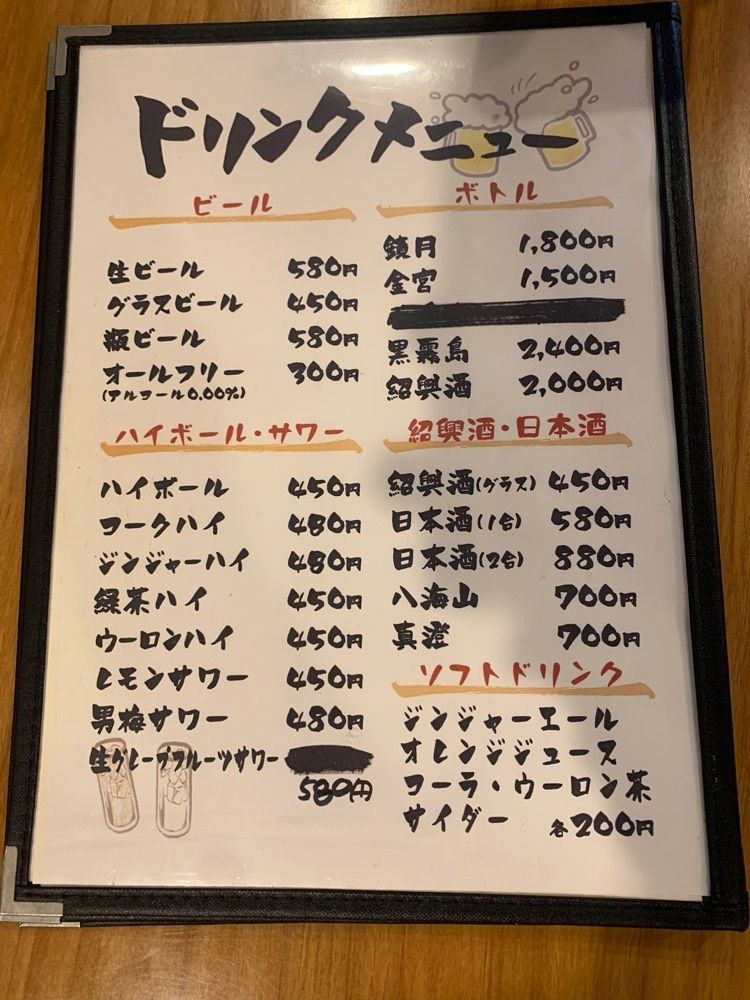 ドリンクメニュー
ビール
生ビール 580円
グラスビール 450円
瓶ビール 580円
オールフリー 300円
(アルコール0.00%)
ハイボール・サワー
ハイボール 450円
コークハイ 480円
ジンジャーハイ 480円
緑茶ハイ 450円
ウーロンハイ 450円
レモンサワー 450円
男梅サワー 480円
生グレープフルーツサワー
580円
ボトル
鏡月 1,800円
金宮 1,500円
黒霧島 2,400円
紹興酒 2,000円
紹興酒・日本酒
紹興酒(グラス) 450円
日本酒(1合) 580円
日本酒(2合) 880円
八海山 700円
真澄 700円
ソフトドリンク
ジンジャーエール
オレンジジュース
コーラ・ウーロン茶
サイダー 各200円